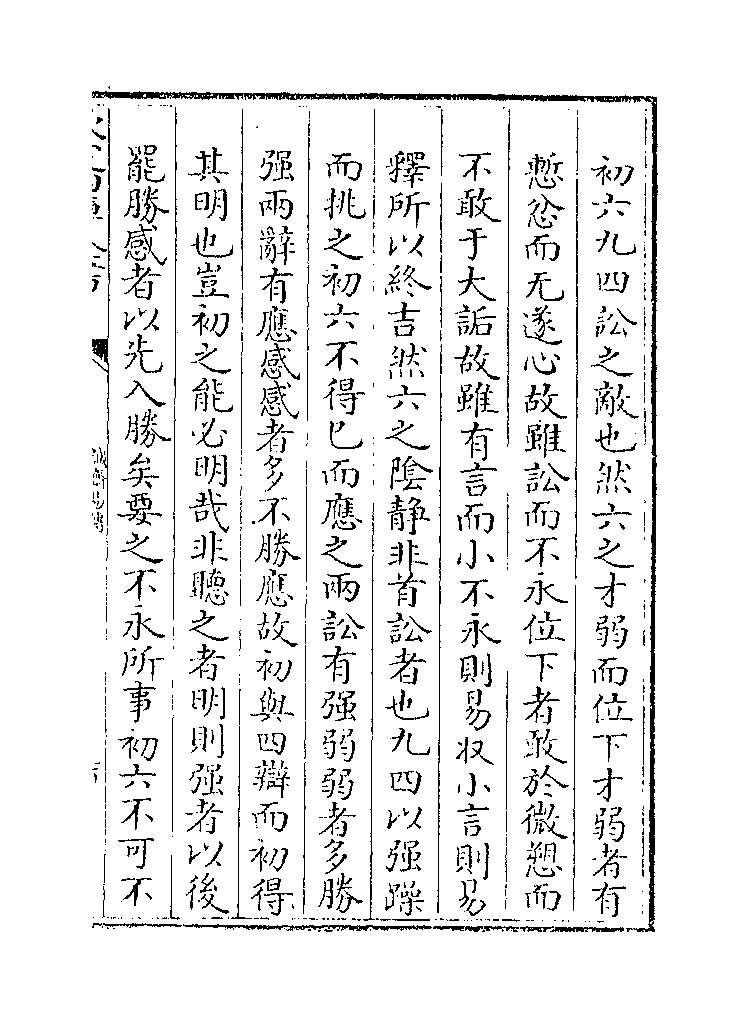 初六九四訟之敵也然六之才弱而位下才弱者有
慙忿而无遂心故雖訟而不永位下者敢於微愬而
不敢于大詬故雖有言而小不永則易收小言則易
釋所以終吉然六之陰静非首訟者也九四以强躁
而挑之初六不得已而應之兩訟有强弱弱者多勝
强兩辭有應感感者多不勝應故初與四辯而初得
其明也豈初之能必明哉非聽之者明則强者以後
罷勝感者以先入勝矣要之不永所事初六不可不
誠齋易傳